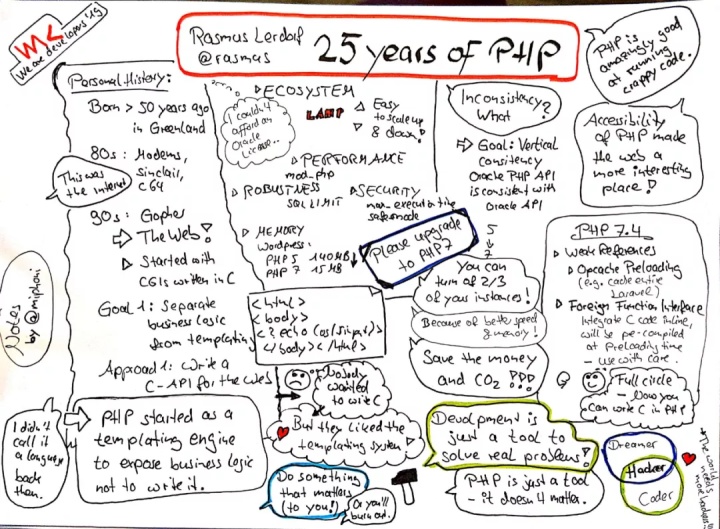 We are developers '19
Rasmus Lerdorf
@rasmus
25 years of PHP
PHP is
amazingly good
at running
crappy code.
Personal History:
Born > 50 years ago
in Greenland
80s: Modems,
Sinclair,
C64
This was
the internet
90s: Gopher
⇨ The Web!
▷ Started with
CGIs written in C
Goal 1: Separate
business logic
from templating
Approach 1: Write a
C-API for the Web
▷ ECOSYSTEM
I couldn't
afford an
Oracle
License..
LAMP
Easy
to scale up
& down!
▷ PERFORMANCE
mod_php
▷ ROBUSTNESS
SQL LIMIT
▷ SECURITY
safemode
▷ MEMORY
Wordpress:
PHP 5 140MB
PHP 7 15MB
Inconsistency?
What
⇨ Goal: Vertical
consitency
Oracle PHP API
is consistent with
Oracle API
5
7
Please upgrade
to PHP7
Accessibility
of PHP made
the web a
more interesting
place!
You can
turn of 2/3
of your instances!
Because of better speed
& memory!
Save the money
and CO2 !!!
PHP 7.4
▷ Weak References
▷ Opcache Preloading
(e.g. cache entire
Laravel)
▷ Foreign Function Interface
Integrate C code inline,
will be pre-compiled
at Preloading time
- use with care.
Full circle
- Now you
can write C in PHP
<html>
<body>
<? echo
</body></html>
Nobody
wanted
to write C
But they liked the
templating system
Notes
by @miphoni
I didn't
call it
a language
back
then.
PHP started as a
templating engine
to expose business logic
not to write it.
Do something
that matters
(to you!)
Or you'll
burn out.
Devlopment is
just a tool to
solve real problems!
PHP is just a tool
- it doesn't matter.
Dreamer
Hacker
Coder
The world
needs
more